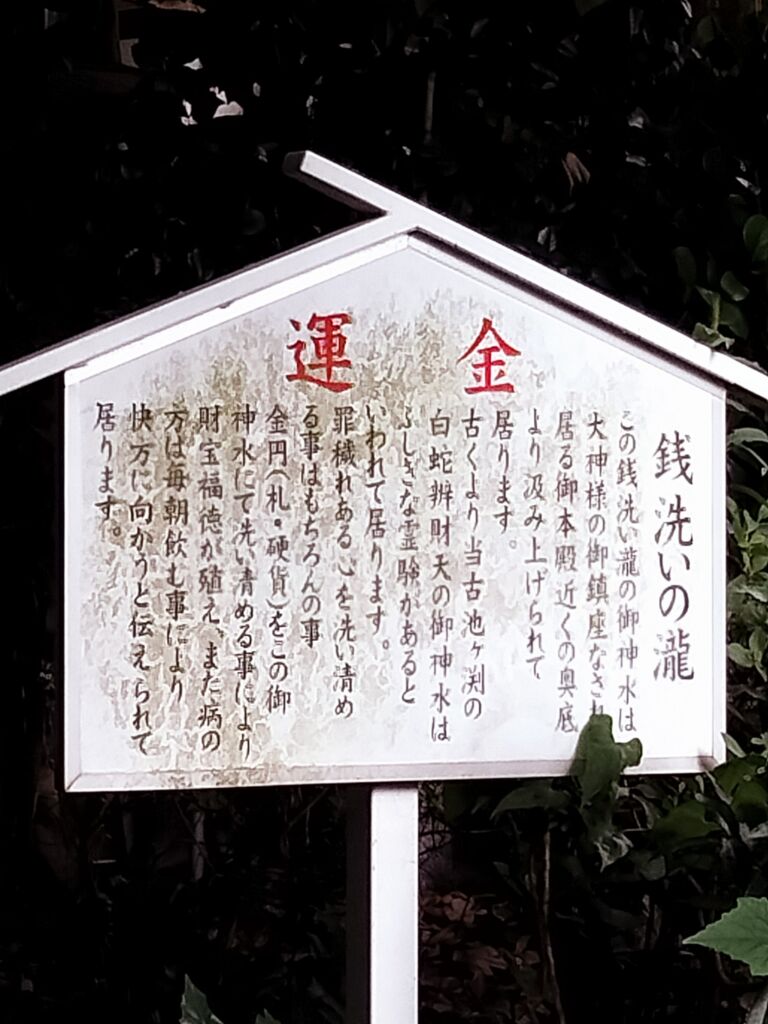 金運
銭洗いの瀧
この銭洗い瀧の御神水は
大神様の御鎮座なされ
居る御本殿近くの奥底
より汲み上げられて
居ります。
古くより当古池ヶ渕の
白蛇辨財天の御神水は
ふしぎな霊験があると
いわれて居ります。
罪穢れある心を洗い清め
る事はもちろんの事
金円(札・硬貨)をこの御
神水にて洗い清める事により
財宝福徳が殖え、また病の
方は毎朝飲む事により
快方に向かうと伝えられて
居ります。